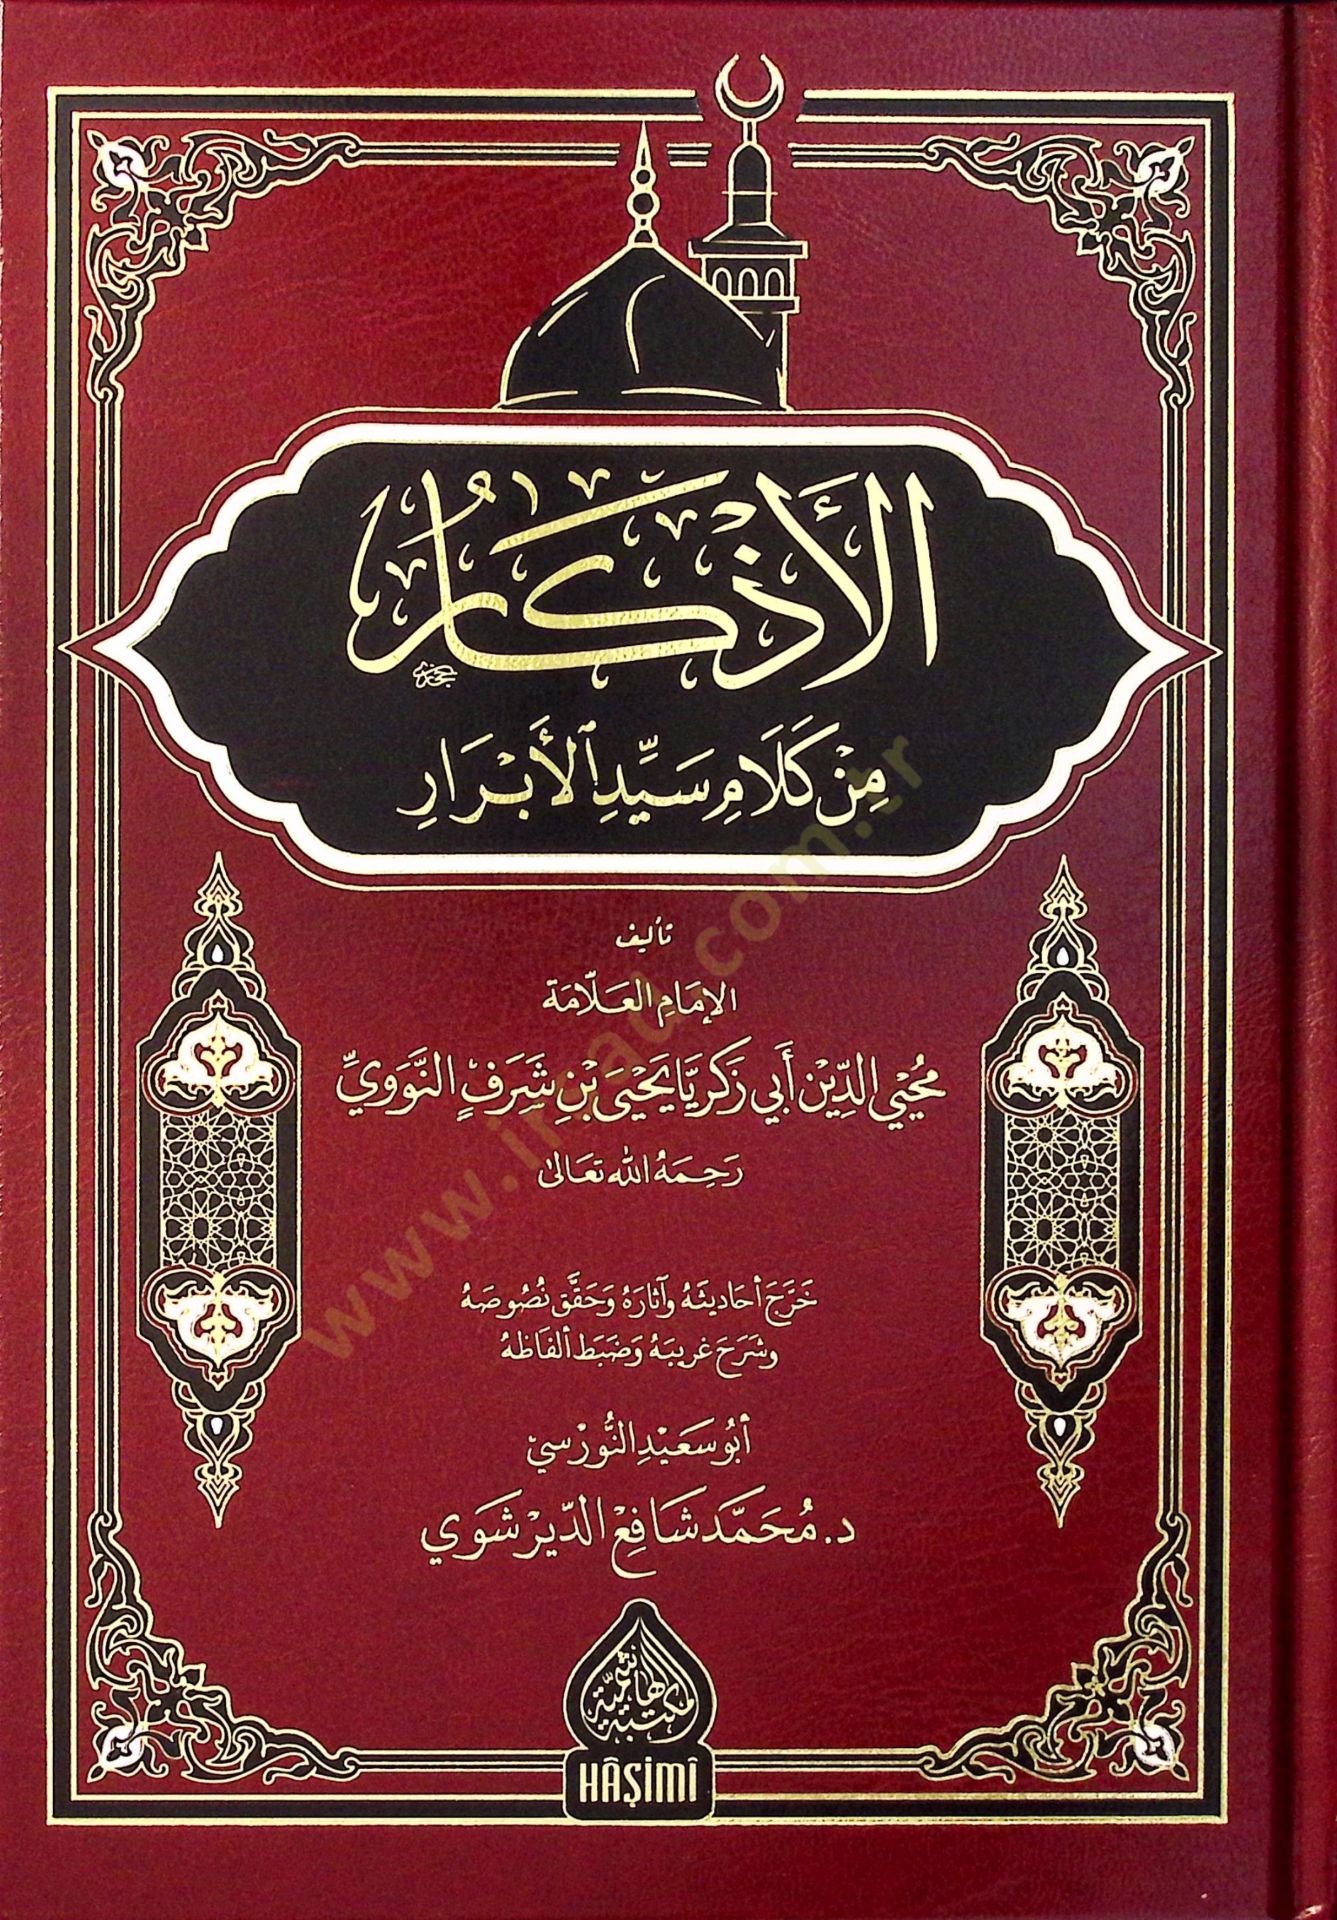 الأَذْكَارُ
مِنْ كَلَامِ سَيِّدِ الأَبْرَارِ
تأليف
الإمَامِ العَلَّامَة
مُحْيِي الدِّين أَبِي زَكَرِيَّا يَحْيَى بْنِ شَرَفٍ النَّوَوِيِّ
رَحِمَهُ الله تعَالى
خَرَّجَ أحَاديثَهُ وآثارَهُ وَحَقَّقَ نُصُوصَهُ
وشَرَحَ غريبَهُ وَضَبَط ألفَاظهُ
أبُو سَعَيْدِ النُّورْسي
د. مُحَمَّد شَافِعْ الدِّيرْشَوِي
المكتبة الهاشمية
HÂŞİMÎ
www.irsad.com.tr